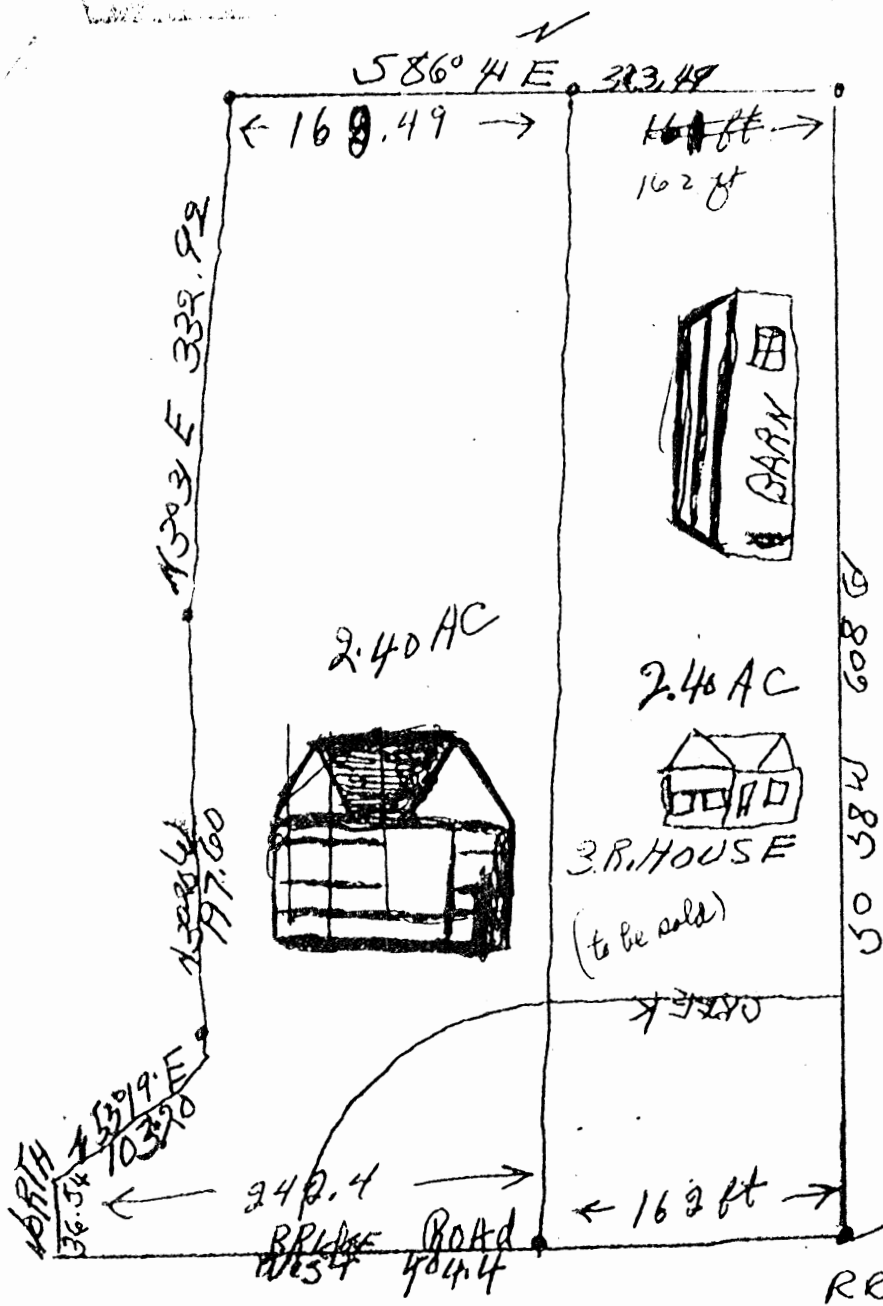 N
S 86° 41 E 323.49
← 162.49 →
162 ft
N 3° 31 E 332.92
BARN
2.40 AC
2.40 AC
608
S 0 58 W
3 R. HOUSE
(to be sold)
197.60
CREEK
N 53° 19' E
103.20
NORTH
36.54
← 242.4 →
← 162 ft →
BRIDGE ROAD
WEST 404.4
RR